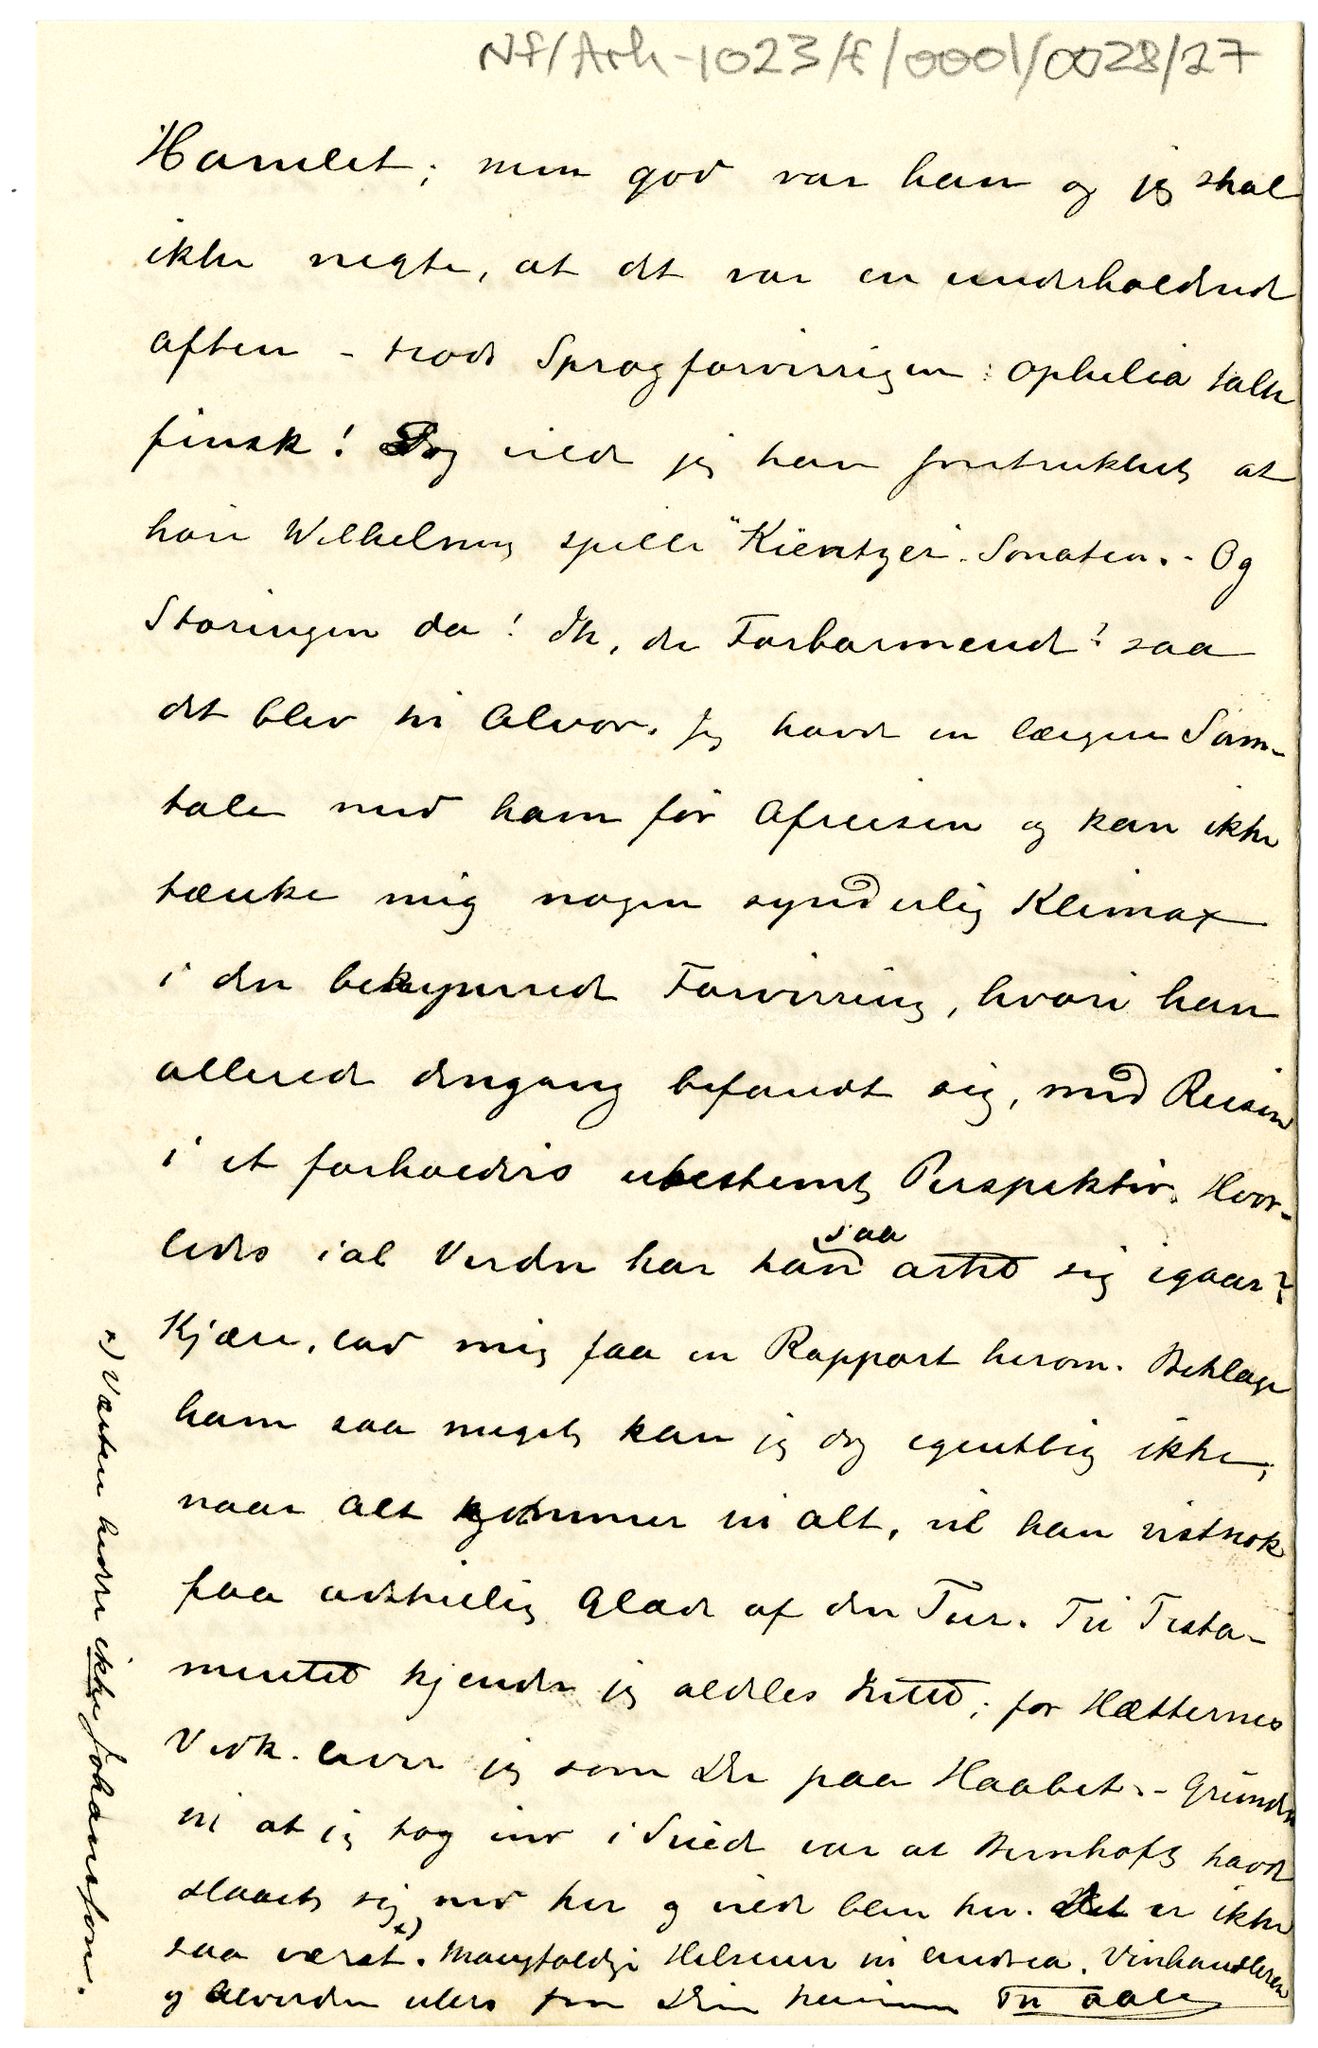 Nf/Ark-1023/f/0001/0028/27
Hamlet; men god var han og jeg skal
ikke negte, at det var en underholdende
aften - trods Sprogforvirringen: Ophelia talte
finsk! Dog vilde jeg have foretrukket at
høre Wilhelmy spille "Kreutzer-Sonaten. - Og
Storingen da! Ih, du Forbarmende! saa
det blev til Alvor. Jeg havde en længere Sam-
tale med ham før Afreisen og kan ikke
tænke mig nogen synderlig Klimax
i den bekymrede Forvirring, hvori han
allerede dengang befandt sig, med Reisen
i et forholdsvis ubestemt Perspektiv. Hvor-
ledes ial Verden har han saa artet sig igaar?
Kjære, lad mig faa en Rapport herom. Beklage
ham saa meget kan jeg dog egentlig ikke;
naar alt kommer til alt, vil han vistnok
faa adskillig Glæde af den Tur. Til Testa-
mentet kjender jeg aldeles Intet; for Hætternes
Vedk. lever jeg som Du paa Haabet. - Grunden
til at jeg tog ind i Smed var at Bernhoft havde
slaaet sig ned her og vilde blive her. Det er ikke
saa værst. x) Mangfoldige Hilsener til Andrea, Vinhandleren
og Alverden ellers fra Din
x) Værten heder ikke Johansson.